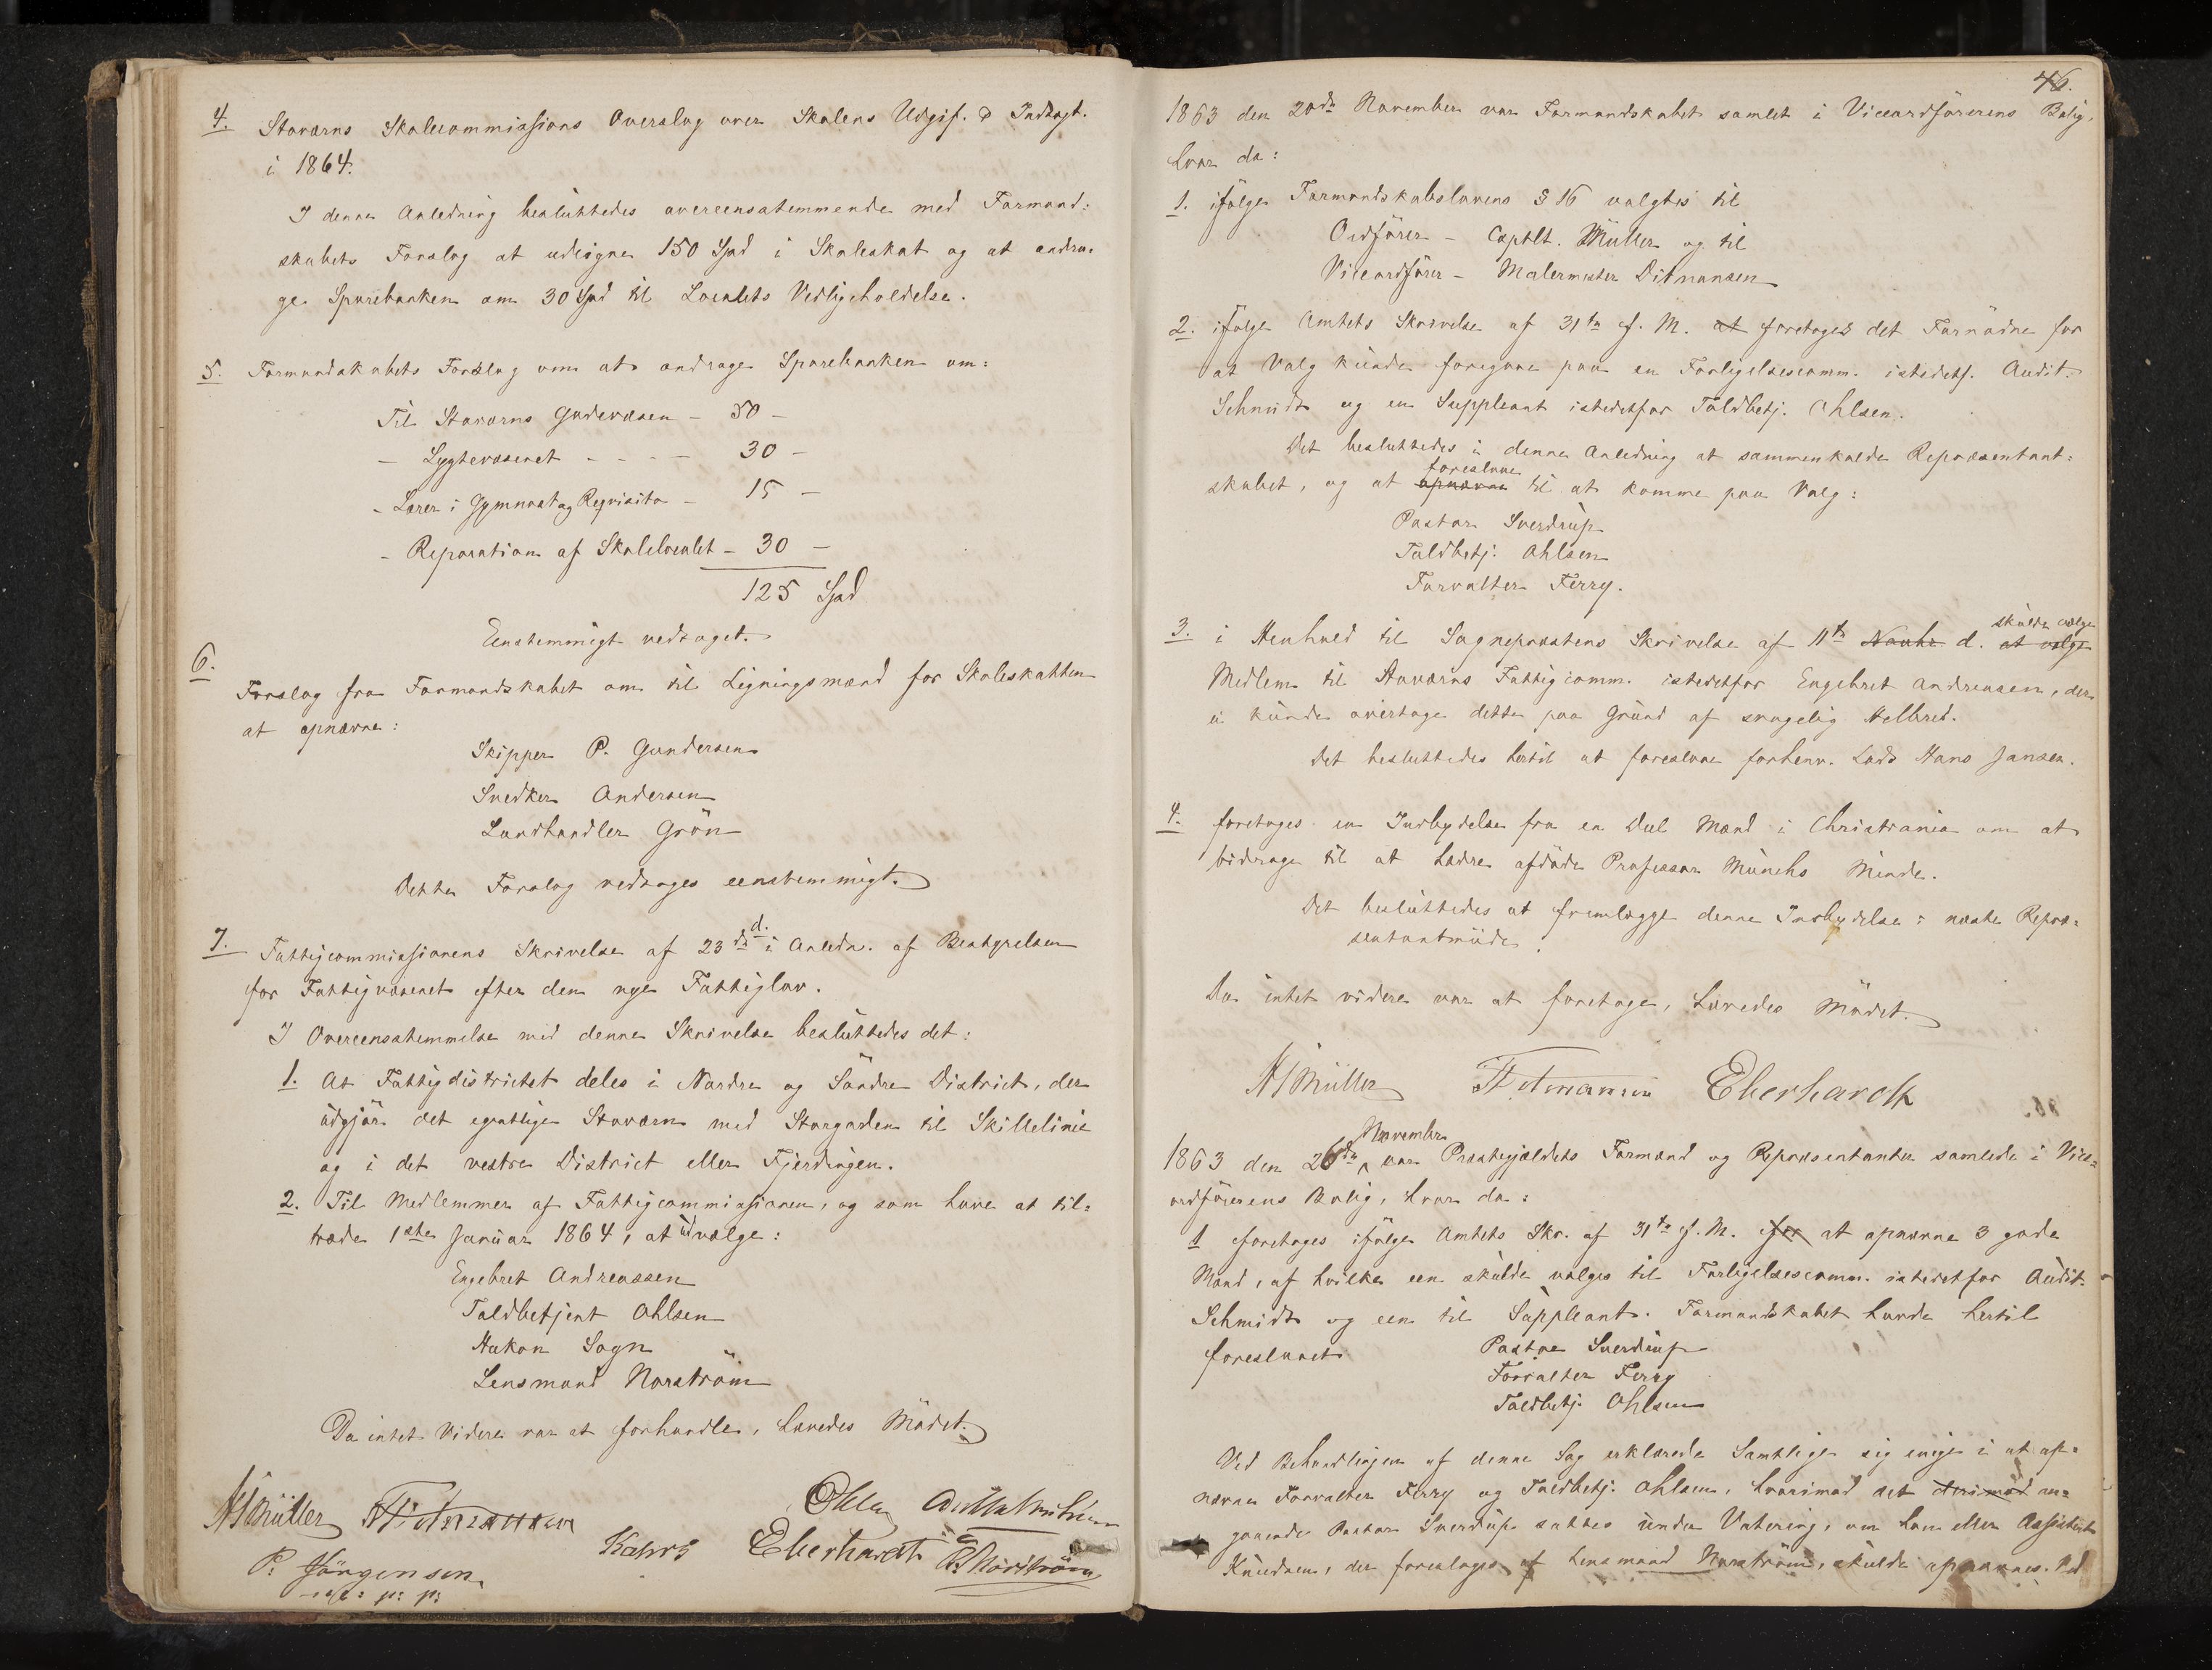 4. Staværns Skolecommissions Overslag over Skolens Udgif. & Indtægt.
i 1864.
I denne Anledning besluttedes overeensstemmende med Formand-
skabets Forslag at udligne 150 Spd i Skoleskat og at andra-
ge Sparebanken om 30 Spd til Localets Vedligeholdelse.
5. Formandskabets Forslag om at andrage Sparebanken om:
Til Staværns Gadevæsen - 50 -
- Lygtevæsenet - - - - 30 -
- Lærer i Gymnast og Reqvisita - 15 -
- Reparation af Skolelocalet - 30 -
125 Spd
Eenstemmigt vedtaget.
6. Forslag fra Formandskabet om til Ligningsmænd for Skoleskatten
at opnævne:
Skipper P. Gundersen
Snedker Andersen
Landhandler Grön
Dette Forslag vedtoges eenstemmigt.
7. Fattigcommissionens Skrivelse af 23de d. i Anledn. af Bestyrelsen
for Fattigvæsenet efter den nye Fattiglov.
I Overeensstemmelse med denne Skrivelse besluttedes det:
1. At Fattigdistrictet deles i Nordre og Söndre District, der
udgjör det egentlige Staværn med Storgaden til Skillelinie
og i det vestre District eller Fjerdingen.
2. Til Medlemmer af Fattigcommissionen, og som have at til-
træde 1ste Januar 1864, at udvælge:
Engebret Andreassen
Toldbetjent Ohlsen
Hakon Sogn
Lensmand Norström
Da intet videre var at forhandle, hævedes Mödet.
HJMüller Ditmansen Ohlsen
P. Jörgensen Kahrs Eberhardt Norström
m: p: p:
46.
1863 den 20de November var Formandskabet samlet i Viceordförerens Bolig,
hvor da:
1. ifölge Formandskabslovens § 16 valgtes til
Ordförer - Captlt. Müller og til
Viceordförer - Malermester Ditmansen
2. ifölge Amtets Skrivelse af 31te f. M. at foretoges det Fornödne for
at Valg kunde foregaae paa en Forligelsescomm. istedetf. Audit.
Schmidt og en Suppleant istedetfor Toldbetj. Ohlsen.
Det besluttedes i denne Anledning at sammenkalde Repræsentant-
skabet, og at opnævne foreslaae til at komme paa Valg:
Pastor Sverdrup
Toldbetj. Ohlsen
Forvalter Ferry.
3. i Henhold til Sognepræstens Skrivelse af 11te Novbr d. at vælge skulde vælges
Medlem til Staværns Fattigcomm. istedetfor Engebret Andreasen, der
ei kunde overtage dette paa Grund af svagelig Helbred.
Det besluttedes hertil at foreslaae forhenv. Lods Hans Jansen.
4. foretoges en Indbydelse fra en Deel Mænd i Christiania om at
bidrage til at hædre afdöde Professor Munchs Minde.
Det besluttedes at fremlægge denne Indbydelse i næste Repræ-
sentantmöde.
Da intet videre var at foretage, hævedes Mödet.
HJMüller Ditmansen Eberhardt
1863 den 26de November var Præstegjældets Formænd og Repræsentanter samlede i Vice-
ordförerens Bolig, hvor da:
1 foretoges ifölge Amtets Skr. af 31te f. M. for at opnævne 3 gode
Mænd, af hvilke een skulde vælges til Forligelsescomm. istedetfor Audit.
Schmidt og een til Suppleant. Formandskabet havde hertil
foreslaaet Pastor Sverdrup
Forvalter Ferry
Toldbetj. Ohlsen
Ved Behandlingen af denne Sag erklærede Samtlige sig enige i at op-
nævne Forvalter Ferry og Toldbetj. Ohlsen, hvorimod det derimod an-
gaaende Pastor Sverdrup sattes under Votering, om han eller Assistent
Knudsen, der foresloges af Lensmand Norström, skulde opnævnes. Ved